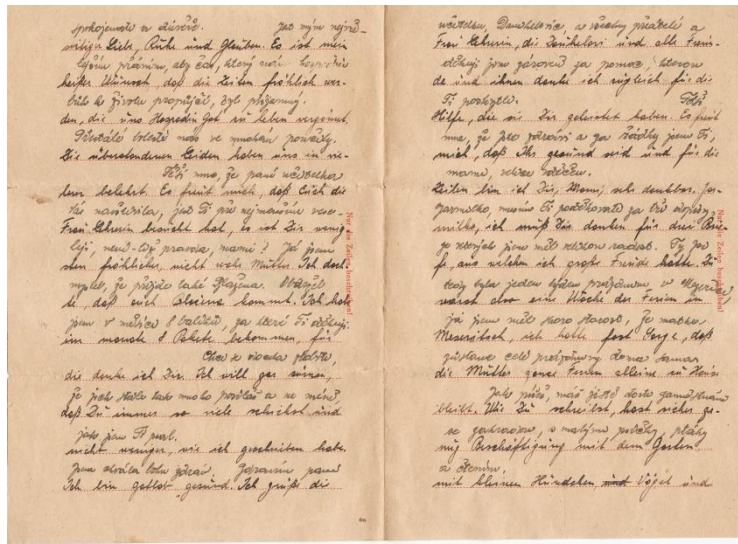 spokojenost a důvěře. Jest mým nejvř-
notige Liebe, Ruhe und Glauben. Es ist mein
lejším přáním, aby čas, který nám
heißer Wunsch, daß die Zeiten fröhlich wer-
k životu propůjčil, byl příjemný.
den, die uns Herrgott zu leben vergönnt.
bolesti nás ve mnohém poučily.
Die überstandenen Leiden haben uns in vie-
Těší mne, že paní učitelka
lem belehrt. Es freut mich, daß Euch die
Vás navštívila, jest Ti přec nejmenším vese-
Frau Lehrerin besucht hat, es ist Dir wenig
leji, není-liž pravda, mami? Já jsem
sten fröhlicher, nicht wahr Mutter. Ich dach-
myslel, že přijde také Obdržel
te, daß auch kommt. Ich habe
jsem v měsíci 8 balíků, za které Ti děkuji.
im monate 8 Pakete bekommen, für
Chci a
die danke ich Dir. Ich will gar nicht,
že jich stále tak mnoho posíláš a ne méně,
daß Du immer so viele schickst und
jak jsem Ti psal.
nicht weniger, wie ich geschrieben habe.
Jsem chvála bohu zdráv. Pozdravuji paní
Ich bin gottlob gesund. Ich grüße die
Nur die Zeilen beschreiben!
učitelku, a všechny přátele a
Frau Lehrerin, die und alle Freun-
děkuji jim zároveň za pomoc, kterou
de und ihnen danke ich zugleich für die
Ti poskytli. Těší
Hilfe, die sie Dir geleistet haben. Es freut
mne, že jste zdrávi a za řádky jsem Ti,
mich, daß Ihr gesund seid und für die
mamo, velice vděčen.
Zeilen bin ich Dir, Mama, sehr dankbar.
musím Ti poděkovati za tři dopisy,
ich muß Dir danken für drei Brie-
z kterých jsem měl velkou radost. Ty jsi
fe, aus welchen ich große Freude hatte. Du
tedy byla jeden týden prázdnin v
warst also eine Woche der Ferien in
já jsem měl skoro starost, že matka
Meseritsch, ich hatte fast Sorge, daß
zůstane celé prázdniny doma sama
die Mutter ganze Ferien alleine zu Hause
Jak píšeš, máš jistě dosti zaměstnání
bleibt. Wie Du schreibst, hast sicher ge-
se zahradou, s malými pejsky, ptáky
nug Beschäftigung mit dem Garten
a
mit kleinen Hündchen, und Vögel und
Nur die Zeilen beschreiben!